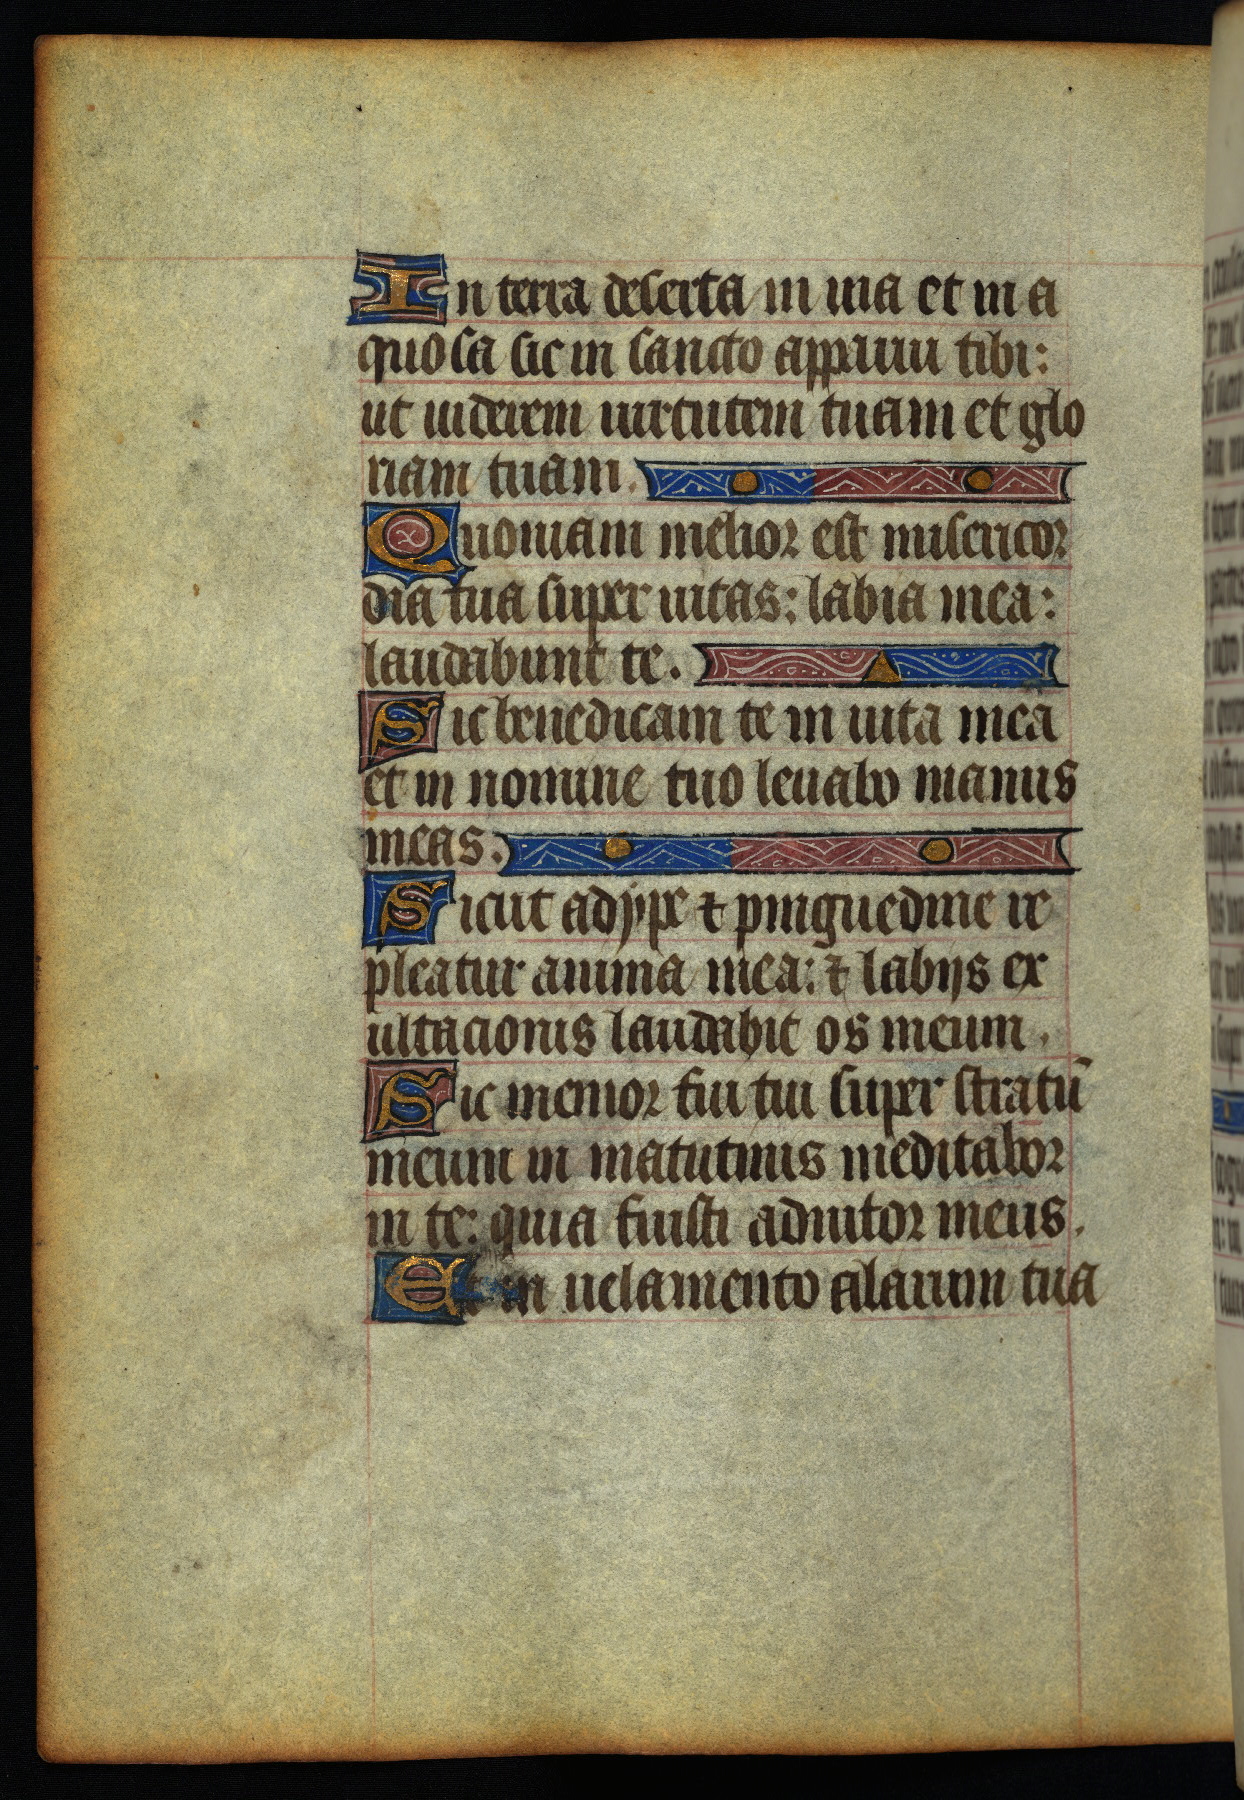 In terra deserta in uia et in a
quosa sic in sancto apparui tibi:
ut uiderem uirtutem tuam et glo
riam tuam.
Quoniam melior est misericor
dia tua super uitas: labia mea:
laudabunt te.
Sic benedicam te in uita mea
et in nomine tuo leuabo manus
meas.
Sicut adype ⁊ pinguedine re
pleatur anima mea: ⁊ labijs ex
ultacionis laudabit os meum.
Sic memor fui tui super stratū
meum in matutinis meditabor
in te: quia fuisti adiutor meus.
Et in uelamento alarum tua